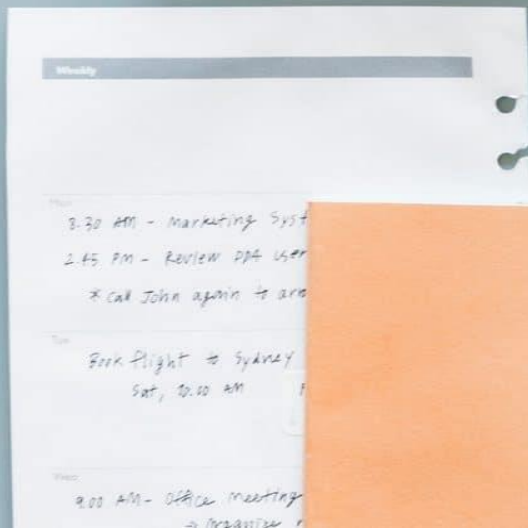 Weekly
Mon
8.30 AM - Marketing Syst
2.45 PM - Review PDA user
* Call John again to arr
Tue
Book flight to Sydney
Sat, 10.00 AM
Wed
9.00 AM - Office Meeting
→ Organize